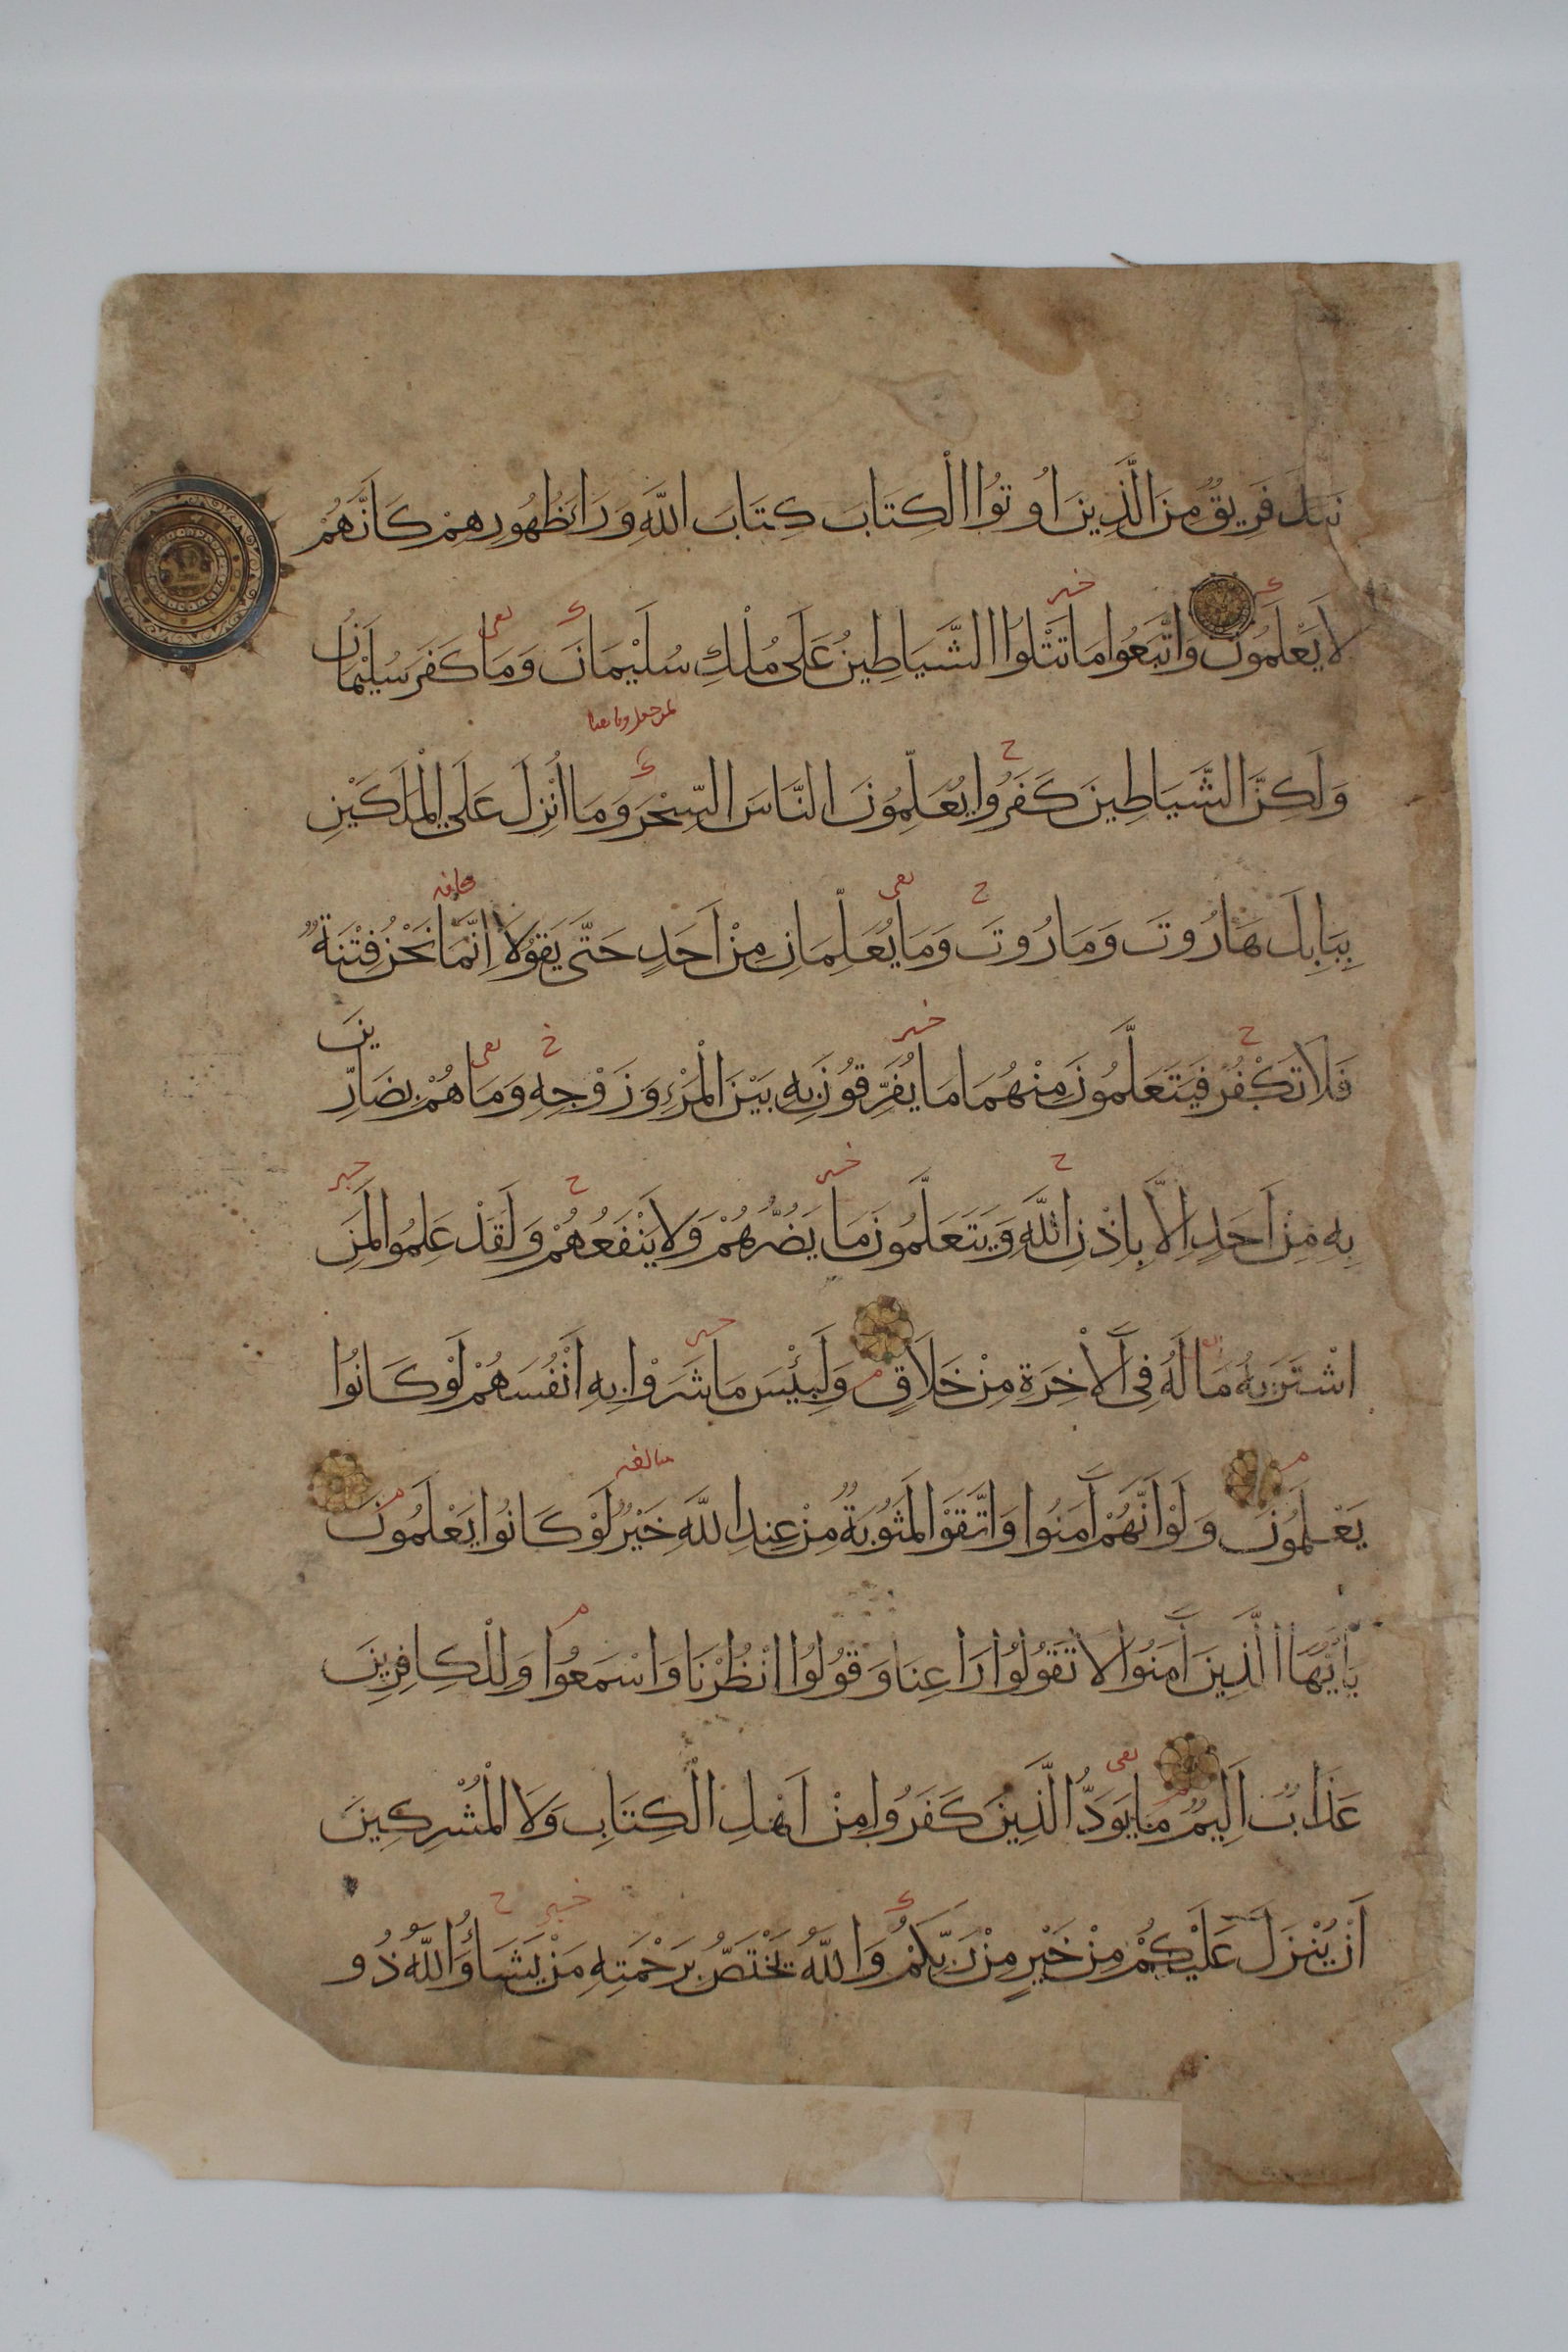 نَبَذَ فَرِيقٌ مِنَ الَّذِينَ اُوتُوا الْكِتَابَ كِتَابَ اللَّهِ وَرَاءَ ظُهُورِهِمْ كَاَنَّهُمْ
لَا يَعْلَمُونَ وَاتَّبَعُوا مَا تَتْلُوا الشَّيَاطِينُ عَلَى مُلْكِ سُلَيْمَانَ وَمَا كَفَرَ سُلَيْمَانُ
وَلَكِنَّ الشَّيَاطِينَ كَفَرُوا يُعَلِّمُونَ النَّاسَ السِّحْرَ وَمَا اُنْزِلَ عَلَى الْمَلَكَيْنِ
بِبَابِلَ هَارُوتَ وَمَارُوتَ وَمَا يُعَلِّمَانِ مِنْ اَحَدٍ حَتَّى يَقُولَا اِنَّمَا نَحْنُ فِتْنَةٌ
فَلَا تَكْفُرْ فَيَتَعَلَّمُونَ مِنْهُمَا مَا يُفَرِّقُونَ بِهِ بَيْنَ الْمَرْءِ وَزَوْجِهِ وَمَا هُمْ بِضَارِّينَ
بِهِ مِنْ اَحَدٍ اِلَّا بِاِذْنِ اللَّهِ وَيَتَعَلَّمُونَ مَا يَضُرُّهُمْ وَلَا يَنْفَعُهُمْ وَلَقَدْ عَلِمُوا لَمَنِ
اشْتَرَىهُ مَا لَهُ فِي الْآخِرَةِ مِنْ خَلَاقٍ وَلَبِئْسَ مَا شَرَوْا بِهِ اَنْفُسَهُمْ لَوْ كَانُوا
يَعْلَمُونَ وَلَوْ اَنَّهُمْ آمَنُوا وَاتَّقَوْا لَمَثُوبَةٌ مِنْ عِنْدِ اللَّهِ خَيْرٌ لَوْ كَانُوا يَعْلَمُونَ
يَا اَيُّهَا الَّذِينَ آمَنُوا لَا تَقُولُوا رَاعِنَا وَقُولُوا انْظُرْنَا وَاسْمَعُوا وَلِلْكَافِرِينَ
عَذَابٌ اَلِيمٌ مَا يَوَدُّ الَّذِينَ كَفَرُوا مِنْ اَهْلِ الْكِتَابِ وَلَا الْمُشْرِكِينَ
اَنْ يُنْزَلَ عَلَيْكُمْ مِنْ خَيْرٍ مِنْ رَبِّكُمْ وَاللَّهُ يَخْتَصُّ بِرَحْمَتِهِ مَنْ يَشَاءُ وَاللَّهُ ذُو